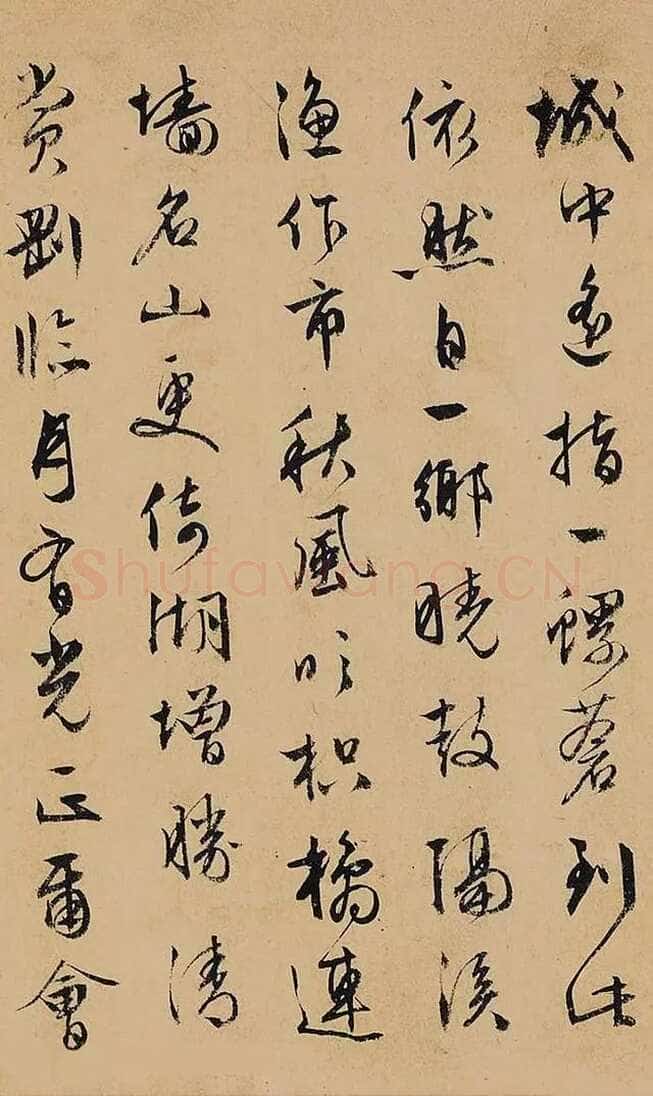 城中遙指一螺蒼到此
依然自一鄉曉鼓隔溪
漁作市秋風吹枳橘連
墻名山更倚湖增勝清
賞剛臨月有光正爾會
Shufawang.CN